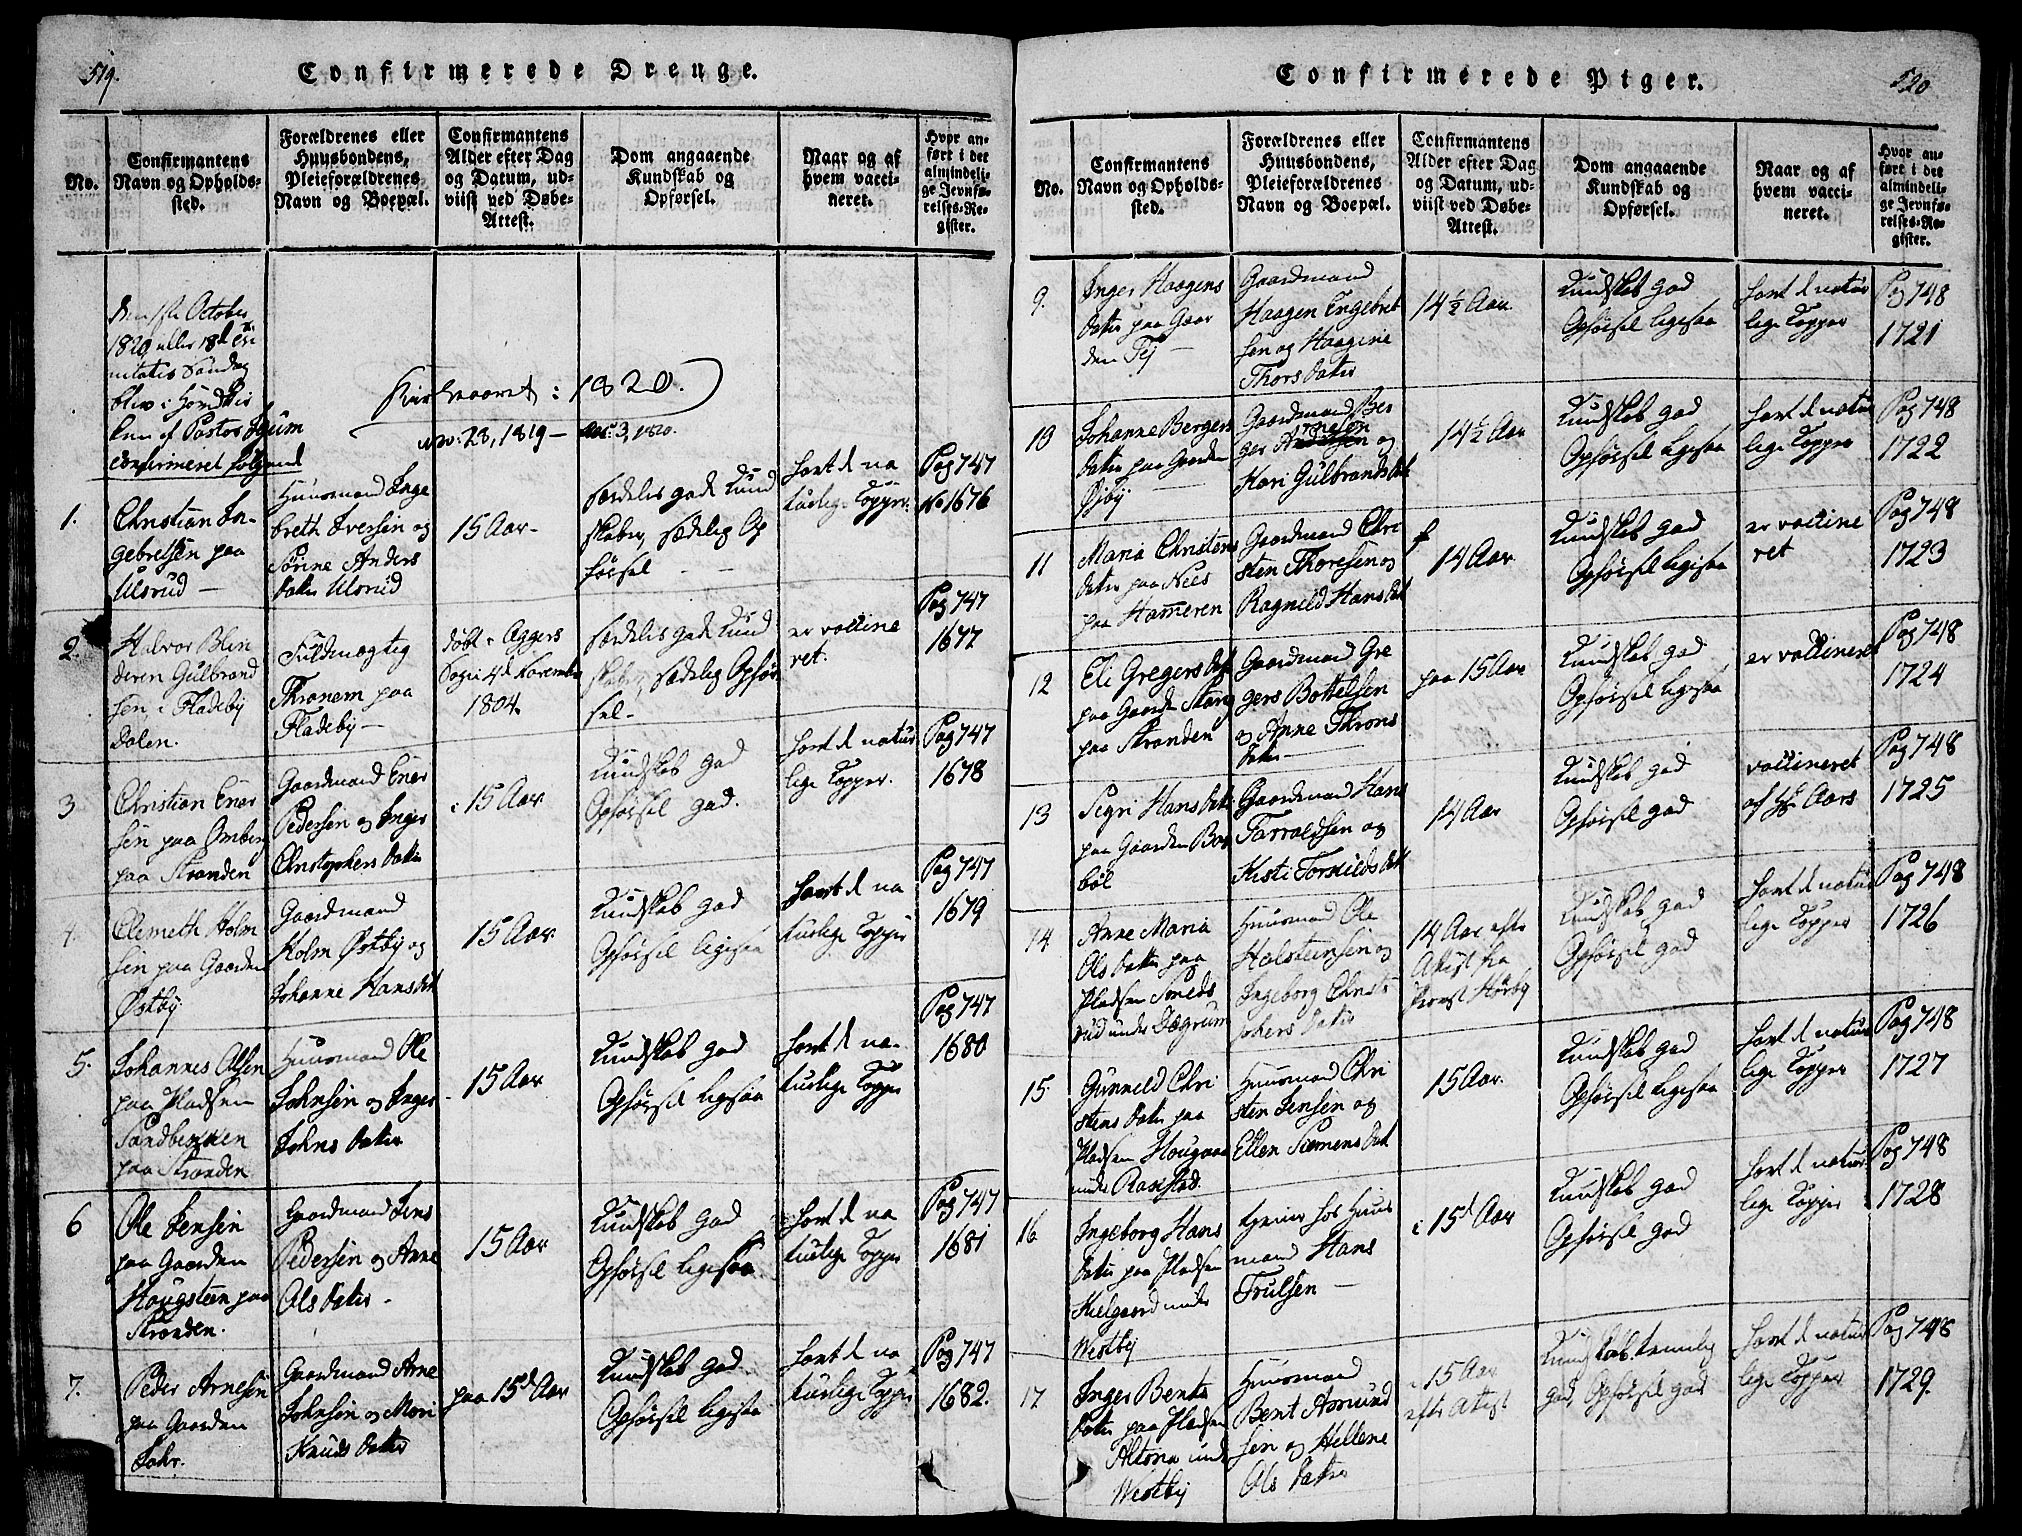 519.
Confirmerede Drenge.
No.
Confirmantens
Navn og Opholds-
sted.
Forældrenes eller
Huusbondens,
Pleieforældrenes
Navn og Boepæl.
Confirmantens
Alder efter Dag
og Datum, ud-
viist ved Døbe-
Attest.
Dom angaaende
Kundskab og
Opførsel.
Naar og af
hvem vacci-
neret.
Hvor an-
ført i det
almindeli-
ge Jevnfø-
relses-Re-
gister.
October
1820 eller 18d
nitatis Søndag
blev i
af Pastor
confirmeret følgende
Kirkeaaret: 1820.
28, 1819 - 3, 1820.
1.
Christian In-
gebretsen paa
Ulsrud -
Huusmand Inge
breth Iversen og
Sørine Anders
datter Ulsrud
15 Aar-
særdeles gode Kund
skaber, sædelig Op
førsel - -
havt d na
turlige Kopper.
Pag 747
No 1676
2.
Halvor Blin
deren Gulbrand
sen, i Fladeby
Dalen.
Fuldmægtig
Thronem paa
Fladeby -
døbt i Aggers
Sogn 4d November
1804.
særdeles gode Kund
skaber, sædelig Opfør
sel-
er vaccine
ret.
Pag 747
1677
3
Christian Ener
sen paa Omberg
paa Stranden
Gaardmand Ener
Pedersen og Inger
Christophers datter
i 15 Aar
Kundskab god
Opførsel god.
havt d natur
lige Kopper.
Pag 747
1678
4.
Clemeth Holm
sen paa Gaarden
Østby
Gaardmand
Holm Østby og
Johanne Hansdat
15 Aar.
Kundskab god
Opførsel ligesaa
havt d na
turlige Kopper
Pag 747
1679
5.
Johannes Olsen
paa Pladsen
Sandbekken
paa Stranden
Huusmand Ole
Johnsen og Inger
Johns datter
15 Aar
Kundskab god
Opførsel ligesaa
havt d na-
turlige Kopper
Pag 747
1680
6
Ole Jensen
paa Gaarden
Hougsteen paa
Stranden.
Gaardmand Jens
Pedersen og Anne
Ols datter -
15 Aar
Kundskab god
Opførsel ligesaa
havt d na
turlige Kopper
Pag 747
1681
7.
Peder Arnesen
paa Gaarden
Gaardmand Arne
Johnsen og Mari
Knuds datter
paa 15d Aar
Kundskab god
Opførsel ligesaa
havt d na
turlige Kopper
Pag 747
1682.
Confirmerede Piger.
520
No.
Confirmantens
Navn og Opholds-
sted.
Forældrenes eller
Huusbondens,
Pleieforældrenes
Navn og Boepæl.
Confirmantens
Alder efter Dag
og Datum, ud-
viist ved Døbe-
Attest.
Dom angaaende
Kundskab og
Opførsel.
Naar og af
hvem vacci-
neret.
Hvor an-
ført i det
almindeli-
ge Jevnfø-
relses-Re-
gister.
9.
Inger Haagens
datter paa Gaar
den Tej -
Gaardmand
Haagen Engebret
sen og Haagine
Thors datter
14 1/2 Aar
Kundskab god
Opførsel ligesaa
havt d natur
lige Kopper
Pag 748
1721
10
Johanne Bergers
datter paa Gaarden
Øjby.
Gaardmand Ber
ger og
Kari Gulbrandsdat
14 1/2 Aar
Kundskab god
Opførsel ligesaa
havt d natur
lige Kopper
Pag 748
1722
11
Maria Christens
datter paa Næs
paa Hameren
Gaardmand Chri
sten Thoresen og
Ragnild Hansdat
14 Aar
Kundskab god
Opførsel ligesaa
er vaccine
ret
Pag 748
1723
12
Eli Gregersdat
paa Gaarden Stang
paa Stranden
Gaardmand Gre
gers Bottelsen
og Anne Throns
datter -
paa 15 Aar
Kundskab god
Opførsel ligesaa
er vaccineret
Pag 748
1724
13
Segri Hansdatter
paa Gaarden Bog
böl
Gaardmand Hans
Tarraldsen og
Kisti Torkildsdat
14 Aar
Kundskab god
Opførsel god
vaccineret
af Hr Aars
Pag 748
1725
14
Anne Maria
Olsdatter paa
Pladsen Smeds
rud under Dægrum
Huusmand Ole
Holsteensen og
Ingeborg Christo
phers datter
14 Aar efter
Attest fra
Provst
Kundskab god
Opførsel god
havt d natur
lige Kopper
Pag 748
1726
15
Gunneld Chri
stens datter paa
Pladsen Hougaas
under Ramstad.
Huusmand Chri
sten Jensen og
Ellen Siemensdat
15 Aar.
Kundskab god
Opførsel ligesaa
havt d natur
lige Kopper
Pag 748
1727
16
Ingeborg Hans
datter paa Pladsen
Kielgaard under
Westby
tjener hos Huus
mand Hans
Trulsen -
i 15d Aar
Kundskab god
Opførsel god
havt d natur
lige Kopper
Pag 748
1728
17
Inger Bents
datter paa Pladsen
Altona under
Westby
Huusmand
Bent Asmund
sen og Hellene
Ols datter
i 15 Aar
efter Attest
Kundskab temmelig
god, Opførsel god
havt d natur
lige Kopper
Pag 748
1729.